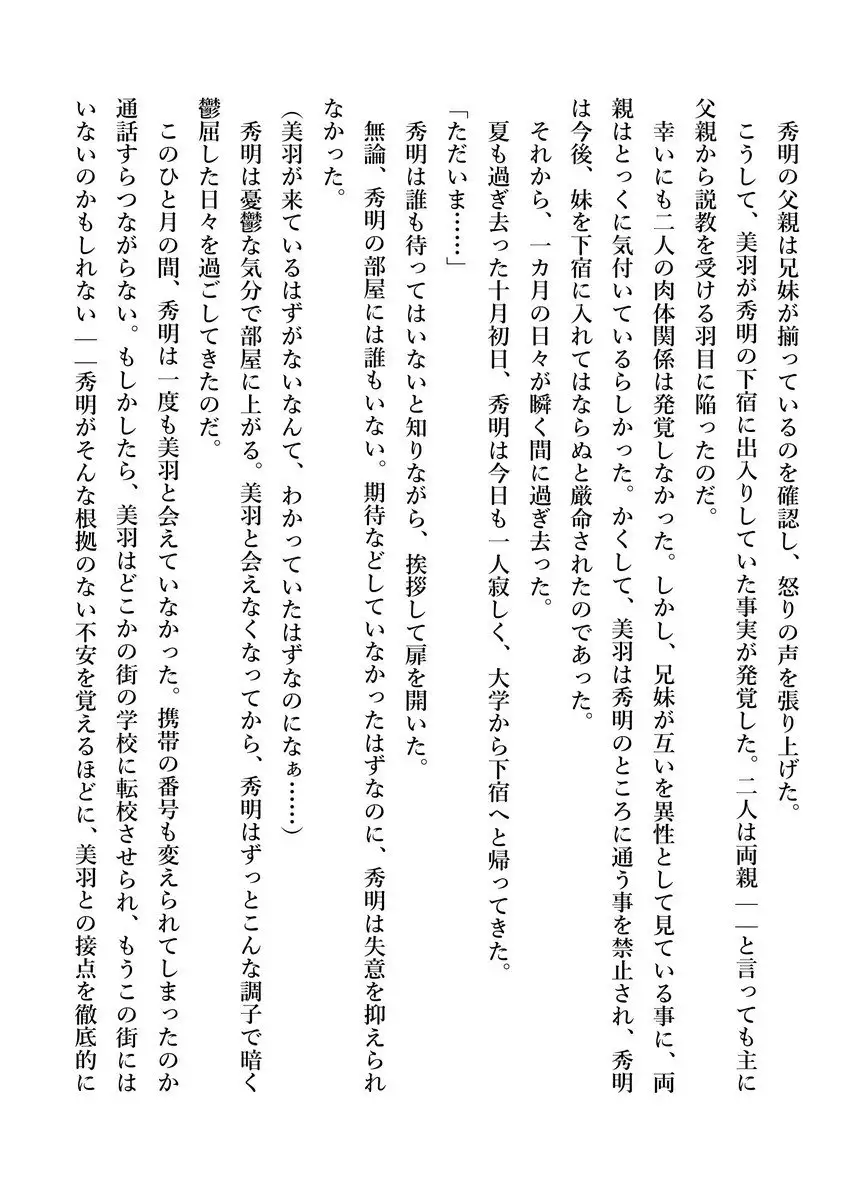 秀明の父親は兄妹が揃っているのを確認し、怒りの声を張り上げた。
こうして、美羽が秀明の下宿に出入りしていた事実が発覚した。二人は両親――と言っても主に
父親から説教を受ける羽目に陥ったのだ。
幸いにも二人の肉体関係は発覚しなかった。しかし、兄妹が互いを異性として見ている事に、両
親はとっくに気付いているらしかった。かくして、美羽は秀明のところに通う事を禁止され、秀明
は今後、妹を下宿に入れてはならぬと厳命されたのであった。
それから、一カ月の日々が瞬く間に過ぎ去った。
夏も過ぎ去った十月初日、秀明は今日も一人寂しく、大学から下宿へと帰ってきた。
「ただいま……」
秀明は誰も待ってはいないと知りながら、挨拶して扉を開いた。
無論、秀明の部屋には誰もいない。期待などしていなかったはずなのに、秀明は失意を抑えられ
なかった。
(美羽が来ているはずがないなんて、わかっていたはずなのになぁ……)
秀明は憂鬱な気分で部屋に上がる。美羽と会えなくなってから、秀明はずっとこんな調子で暗く
鬱屈した日々を過ごしてきたのだ。
このひと月の間、秀明は一度も美羽と会えていなかった。携帯の番号も変えられてしまったのか
通話すらつながらない。もしかしたら、美羽はどこかの街の学校に転校させられ、もうこの街には
いないのかもしれない――秀明がそんな根拠のない不安を覚えるほどに、美羽との接点を徹底的に